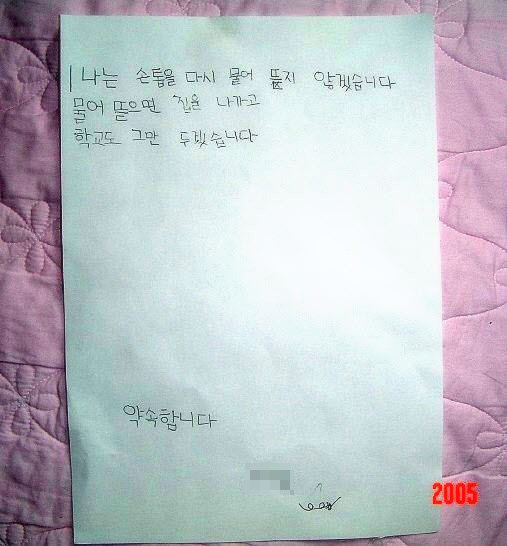 나는 손톱을 다시 물어 뜯지 않겠습니다
물어 뜯으면 집을 나가고
학교도 그만 두겠습니다
약속합니다
2005